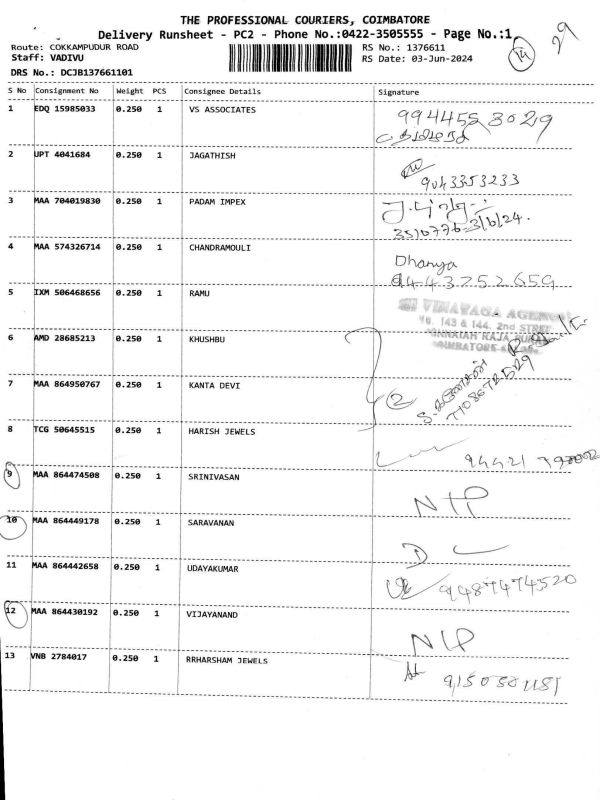 THE PROFESSIONAL COURIERS, COIMBATORE
Delivery Runsheet - PC2 - Phone No.:0422-3505555 - Page No.:1
14
29
Route: COKKAMPUDUR ROAD
RS No.: 1376611
Staff: VADIVU
RS Date: 03-Jun-2024
DRS No.: DCJB137661101
S No Consignment No Weight PCS Consignee Details Signature
1 EDQ 15985033 0.250 1 VS ASSOCIATES 9944553029
2 UPT 4041684 0.250 1 JAGATHISH
9043353233
3 MAA 704019830 0.250 1 PADAM IMPEX
3/6/24.
4 MAA 574326714 0.250 1 CHANDRAMOULI
Dhanya
9443752659
5 IXM 506468656 0.250 1 RAMU
VINAYAGA
No. 143 & 144, 2nd STREET
RAJA
COIMBATORE
6 AMD 28685213 0.250 1 KHUSHBU
7 MAA 864950767 0.250 1 KANTA DEVI
2
8 TCG 50645515 0.250 1 HARISH JEWELS
9 MAA 864474508 0.250 1 SRINIVASAN
NTP
10 MAA 864449178 0.250 1 SARAVANAN
D
11 MAA 864442658 0.250 1 UDAYAKUMAR
9487474520
12 MAA 864430192 0.250 1 VIJAYANAND
NIP
13 VNB 2784017 0.250 1 RRHARSHAM JEWELS